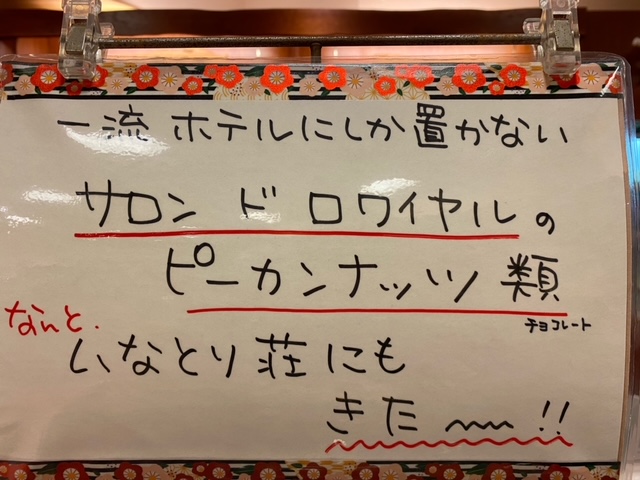 一流ホテルにしか置かない
サロン ド ロワイヤルの
ピーカンナッツ類
チョコレート
なんと、
いなとり荘にも
きた〜〜!!